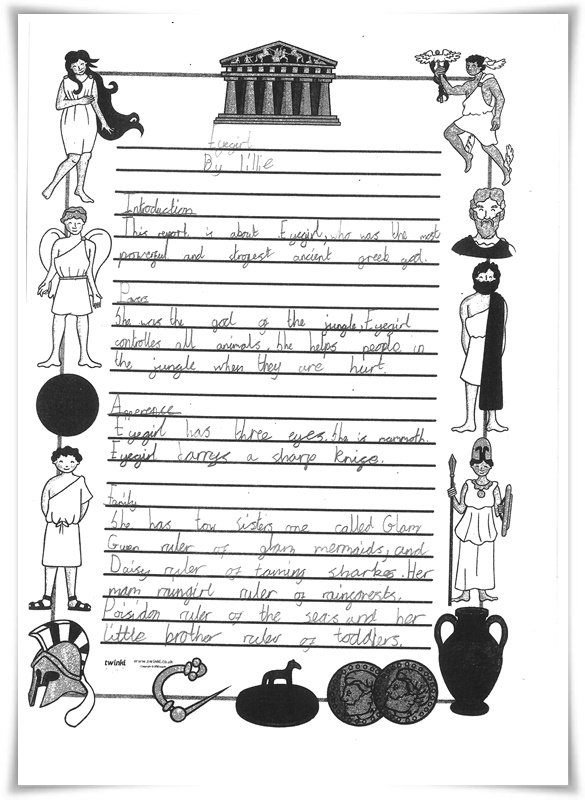 Eyegirl
By lillie
Introduction
This report is about Eyegirl, who was the most
prowerful and strogest ancient greek god.
Powers
She was the god of the jungle, Eyegirl
controlles all animals. She helps people in
the jungle when they are hurt.
Apperence
Eyegirl has three eyes. She is mammoth.
Eyegirl carrys a sharp knige.
Family
She has tow sisters one called Glam
Gwen ruler of glam mermaids, and
Daisy ruler of taming sharkes. Her
mam raingirl ruler of raingorests.
Poisidon ruler of the seas and her
little brother ruler of toddlers.
twinkl www.twinkl.co.uk